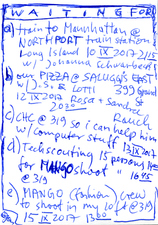 WAITING FOR
a) train to Manhattan @
NORTHPORT train station
Long Island 10 IX 2017 2115
w/ Johanna Schwarbeck
b) our PIZZA @ SALUGGI'S EAST
w/ D.S. & LOTTI 399 Grand St
12 IX 2017 Rosa + Sandra
2030 Rauch
c) CHC @ 319 so i can help him
w/ Computer stuff 13 IX 2017
d) Techscouting 15 persons
for MANGO shoot
@ 319 1645
e) MANGO (fashion) Crew
to shoot in my loft @ 319
15 IX 2017 1300